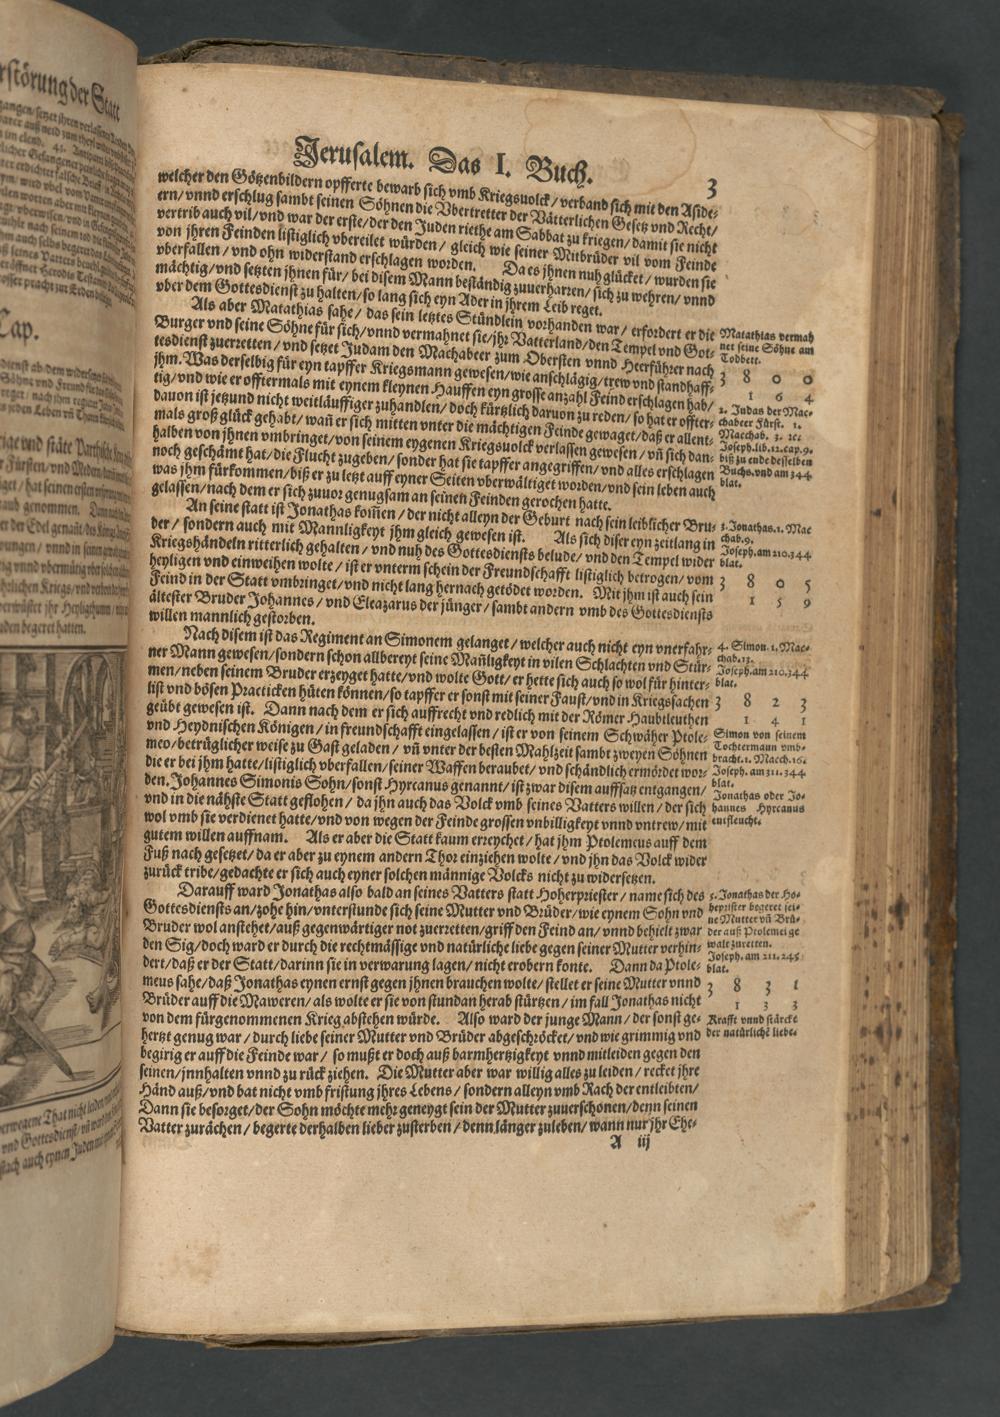 Jerusalem. Das I. Buch.
3
welcher den Götzenbildern opfferte bewarb sich vmb Kriegsuolck / verband sich mit den Aside-
ern / vnnd erschlug sambt seinen Söhnen die Vbertretter der Vätterlichen Gesetz vnd Recht /
vertrib auch vil / vnd war der erste / der den Juden riethe am Sabbat zu kriegen / damit sie nicht
von jhren Feinden listiglich vbereilet würden / gleich wie seiner Mitbrüder vil vom Feinde
vberfallen / vnd ohn widerstand erschlagen worden. Da es jhnen nuh glücket / wurden sie
mächtig / vnd setzten jhnen für / bei disem Mann beständig zuuerharren / sich zu wehren / vnnd
vber dem Gottesdienst zu halten / so lang sich eyn Ader in jhrem Leib reget.
Als aber Matathias sahe / das sein letztes Stündlein vorhanden war / erfordert er die
Burger vnd seine Söhne für sich / vnnd vermahnet sie / jhr Vatterland / den Tempel vnd Got-
tesdienst zuerretten / vnd setzet Judam den Machabeer zum Obersten vnnd Heerführer nach
jhm. Was derselbig für eyn tapffer Kriegsmann gewesen / wie anschlägig / trew vnd standhaff-
tig / vnd wie er offtermals mit eynem kleynen Hauffen eyn grosse anzahl Feind erschlagen hab /
dauon ist jetzund nicht weitläuffiger zuhandlen / doch kürtzlich daruon zu reden / so hat er offter-
mals groß glück gehabt / wañ er sich mitten vnter die mächtigen Feinde gewaget / daß er allent-
halben von jhnen vmbringet / von seinem eygenen Kriegsuolck verlassen gewesen / vñ sich dan-
noch geschämt hat / die Flucht zugeben / sonder hat sie tapffer angegriffen / vnd alles erschlagen
was jhm fürkommen / biß er zu letzt auff eyner Seiten vberwältiget worden / vnd sein leben auch
gelassen / nach dem er sich zuuor genugsam an seinen Feinden gerochen hatte.
An seine statt ist Jonathas kom̃en / der nicht alleyn der Geburt nach sein leiblicher Bru-
der / sondern auch mit Mannligkeyt jhm gleich gewesen ist. Als sich diser eyn zeitlang in
Kriegshändeln ritterlich gehalten / vnd nuh des Gottesdiensts belude / vnd den Tempel wider
heyligen vnd einweihen wolte / ist er vnterm schein der Freundschafft listiglich betrogen / vom
Feind in der Statt vmbringet / vnd nicht lang hernach getödet worden. Mit jhm ist auch sein
ältester Bruder Johannes / vnd Eleazarus der jünger / sambt andern vmb des Gottesdiensts
willen mannlich gestorben.
Nach disem ist das Regiment an Simonem gelanget / welcher auch nicht eyn vnerfahr-
ner Mann gewesen / sondern schon allbereyt seine Mañligkeyt in vilen Schlachten vnd Stür-
men / neben seinem Bruder erzeyget hatte / vnd wolte Gott / er hette sich auch so wol für hinter-
list vnd bösen Practicken hüten können / so tapffer er sonst mit seiner Faust / vnd in Kriegssachen
geübt gewesen ist. Dann nach dem er sich auffrecht vnd redlich mit der Römer Haubtleuthen
vnd Heydnischen Königen / in freundschafft eingelassen / ist er von seinem Schwäher Ptole-
meo / betrüglicher weise zu Gast geladen / vñ vnter der besten Mahlzeit sambt zweyen Söhnen
die er bei jhm hatte / listiglich vberfallen / seiner Waffen beraubet / vnd schändlich ermördet wor-
den. Johannes Simonis Sohn / sonst Hyrcanus genannt / ist zwar disem auffsatz entgangen /
vnd in die nähste Statt geflohen / da jhn auch das Volck vmb seines Vatters willen / der sich
wol vmb sie verdienet hatte / vnd von wegen der Feinde grossen vnbilligkeyt vnnd vntrew / mit
gutem willen auffnam. Als er aber die Statt kaum erreychet / hat jhm Ptolemeus auff dem
Fuß nach gesetzet / da er aber zu eynem andern Thor einziehen wolte / vnd jhn das Volck wider
zurück tribe / gedachte er sich auch eyner solchen männige Volcks nicht zu widersetzen.
Darauff ward Jonathas also bald an seines Vatters statt Hoherpriester / name sich des
Gottesdiensts an / zohe hin / vnterstunde sich seine Mutter vnd Brüder / wie eynem Sohn vnd
Bruder wol anstehet / auß gegenwärtiger not zuerretten / griff den Feind an / vnnd behielt zwar
den Sig / doch ward er durch die rechtmässige vnd natürliche liebe gegen seiner Mutter verhin-
dert / daß er der Statt / darinn sie in verwarung lagen / nicht erobern konte. Dann da Ptole-
meus sahe / daß Jonathas eynen ernst gegen jhnen brauchen wolte / stellet er seine Mutter vnnd
Brüder auff die Mawren / als wolte er sie von stundan herab stürtzen / im fall Jonathas nicht
von dem fürgenommenen Krieg abstehen würde. Also ward der junge Mann / der sonst ge-
hertzt genug war / durch liebe seiner Mutter vnd Brüder abgeschröcket / vnd wie grimmig vnd
begirig er auff die Feinde war / so mußt er doch auß barmhertzigkeyt vnnd mitleiden gegen den
seinen / jnnhalten vnnd zu rück ziehen. Die Mutter aber war willig alles zu leiden / recket jhre
Händ auß / vnd bat nicht vmb fristung jhres Lebens / sondern alleyn vmb Rach der entleibten /
Dann sie besorget / der Sohn möchte mehr geneygt sein der Mutter zuuerschonen / denn seinen
Vatter zurächen / begerte derhalben lieber zusterben / denn länger zuleben / wann nur jhr Ehe-
A iij
Matathias vermah
net seine Söhne am
Todbett.
3 8 0 0
1 6 4
2. Judas der Mac-
chabeer Fürst. 1.
Macchab. 3. 2c.
Joseph. lib. 12. cap. 9.
biß zu ende desselben
Buchs. vnd am 344
blat.
3. Jonathas. 1. Mac
chab. 9.
Joseph. am 210. 344
blat.
3 8 0 5
1 5 9
4. Simon. 1. Mac-
chab. 13.
Joseph. am 210. 344
blat.
3 8 2 3
1 4 1
Simon von seinem
Tochtermann vmb-
bracht. 1. Macch. 16.
Joseph. am 211. 344
blat.
Jonathas oder Jo-
hannes Hyrcanus
entfleucht.
5. Jonathas der Ho-
hepriester begeret sei-
ne Mutter vñ Brü-
der auß Ptolemei ge
walt zuretten.
Joseph. am 211. 245
blat.
3 8 3 1
1 3 3
Krafft vnnd stärcke
der natürlichē liebe.